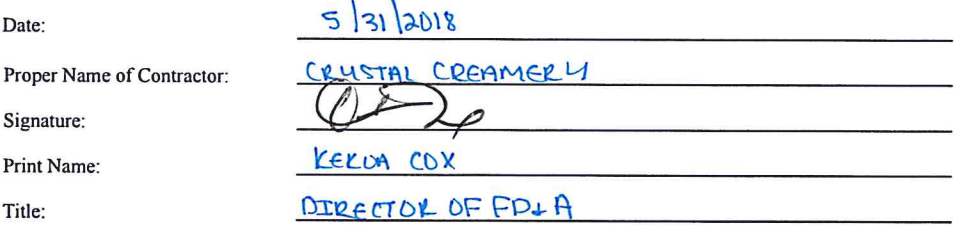 Date: 5/31/2018
Proper Name of Contractor: CRYSTAL CREAMERY
Signature:
Print Name: COX
Title: DIRECTOR OF FP&A